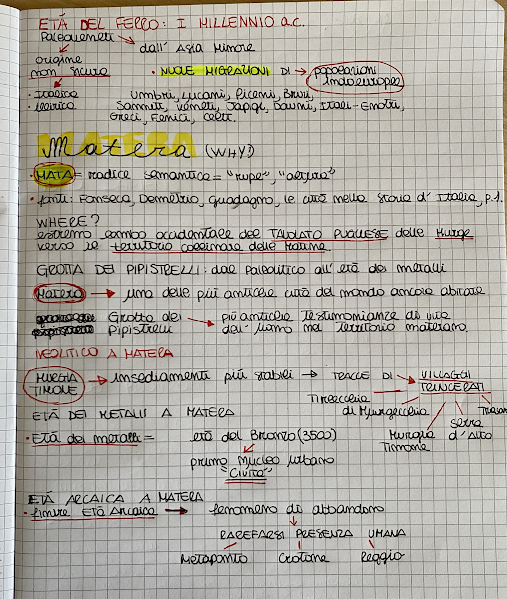 ETÀ DEL FERRO: I MILLENNIO a.C.
Paleoveneti dall' Asia Minore
origine
non sicura
• NUOVE MIGRAZIONI DI popolazioni
Indoeuropee
• Italica
• illirica
Umbri, Lucani, Piceni, Bruzi,
Sanniti, Veneti, Japigi, Dauni, Itali-Enotri,
Greci, Fenici, Celti.
MATERA
Matera (WHY?)
• MATA = radice semantica = "rupe", "altura"
• fonti: Fonseca, Demetrio, Guadagno, le città nella storia d' Italia, p.1.
WHERE?
estremo lembo occidentale del TAVOLATO PUGLIESE delle Murge
verso il territorio collinare delle Matine.
GROTTA DEI PIPISTRELLI: dal Paleolitico all' età dei metalli
Matera una delle più antiche città del mondo ancora abitate
Grotta dei
Pipistrelli
più antiche testimonianze di vita
dell' uomo nel territorio materano.
NEOLITICO A MATERA
MURGIA
TIMONE
insediamenti più stabili TRACCE DI VILLAGGI
TRINCERATI
Tirlecchia
di Murgecchia
Murgia
Timone
Serra
d'Alto
ETÀ DEI METALLI A MATERA
• Età dei metalli = età del Bronzo (3500)
primo Nucleo urbano
"Civita"
ETÀ ARCAICA A MATERA
• finire Età Arcaica fenomeno di abbandono
RAREFARSI PRESENZA UMANA
Metaponto Crotone Reggio